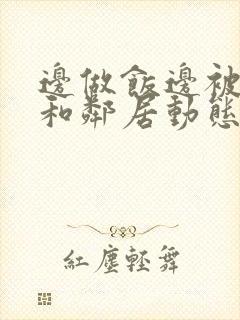 邊做飯邊被
和鄰居動態
紅塵輕舞